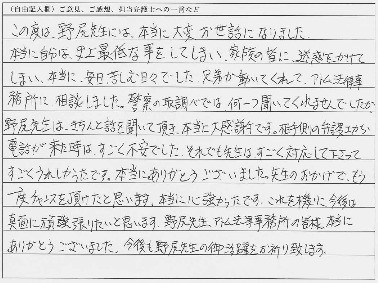 (自由記入欄) ご意見、ご感想、担当弁護士への一言など
この度は、野尻先生には、本当に大変お世話になりました。
本当に自分は、史上最低な事をしてしまい、家族の皆に、迷惑をかけて
しまい、本当に、毎日苦しむ日々でした。兄弟が動いてくれて、アトム法律事
務所に相談しました。警察の取調べでは、何一つ聞いてくれませんでしたが、
野尻先生は、きちんと話を聞いて頂き、本当に大感謝です。相手側の弁護士から
電話が来た時は、すごく不安でした。それでも先生は、すごく対応して下さって
すごくうれしかったです。本当にありがとうございました。先生のおかげで、もう
一度チャンスを頂けたと思います。本当に心強かったです。これを機に今後は
真面に頑張りたいと思います。野尻先生、アトム法律事務所の皆様、本当に
ありがとうございました。今後も野尻先生の御活躍をお祈り致します。